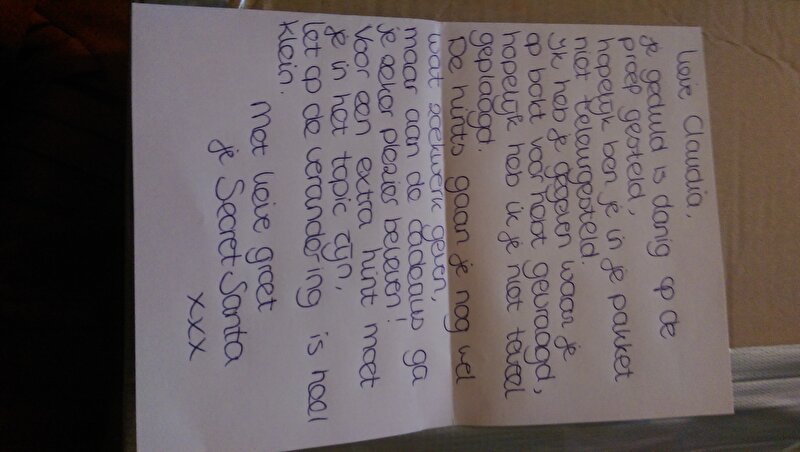 Lieve Claudia,
je geduld is danig op de
proef gesteld,
hopelijk ben je in je pakket
niet teleurgesteld.
Ik heb je gegeven waar je
op bokt voor hart gevraagd,
hopelijk heb ik je niet teveel
geplaagd.
De hints gaan je nog wel
wat zoekwerk geven,
maar aan de cadeaus ga
je zeker plezier beleven!
Voor een extra hint moet
je in het topic zijn,
let op de verandering is heel
klein.
Met lieve groet
je Secret Santa
xxx